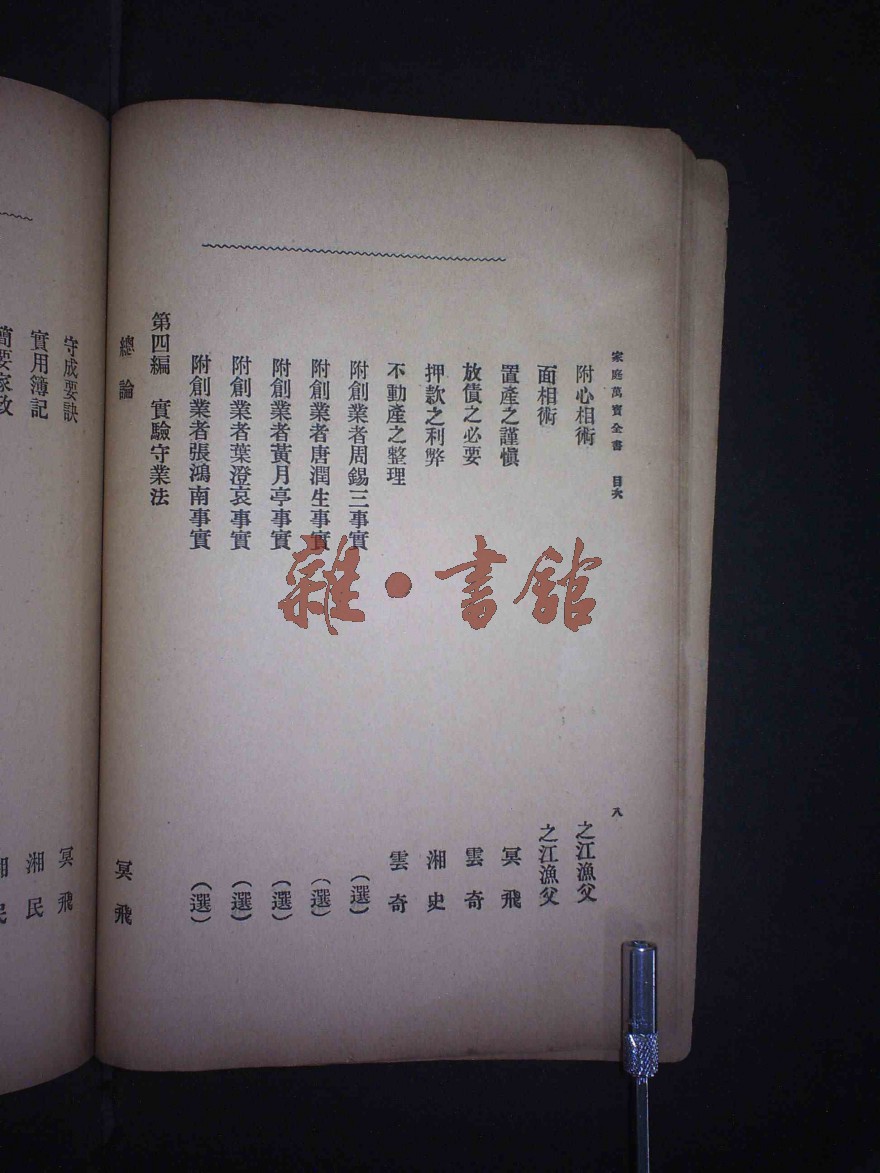 家庭萬寶全書 目次 八
附心相術 之江漁父
面相術 之江漁父
置產之謹愼 冥飛
放債之必要 雲奇
押款之利弊 湘史
不動產之整理 雲奇
附創業者周錫三事實 (選)
附創業者唐潤生事實 (選)
附創業者黃月亭事實 (選)
附創業者葉澄衷事實 (選)
附創業者張鴻南事實 (選)
第四編 實驗守業法
總論 冥飛
守成要訣 冥飛
實用簿記 湘民
簡要家政 湘民
雜·書館